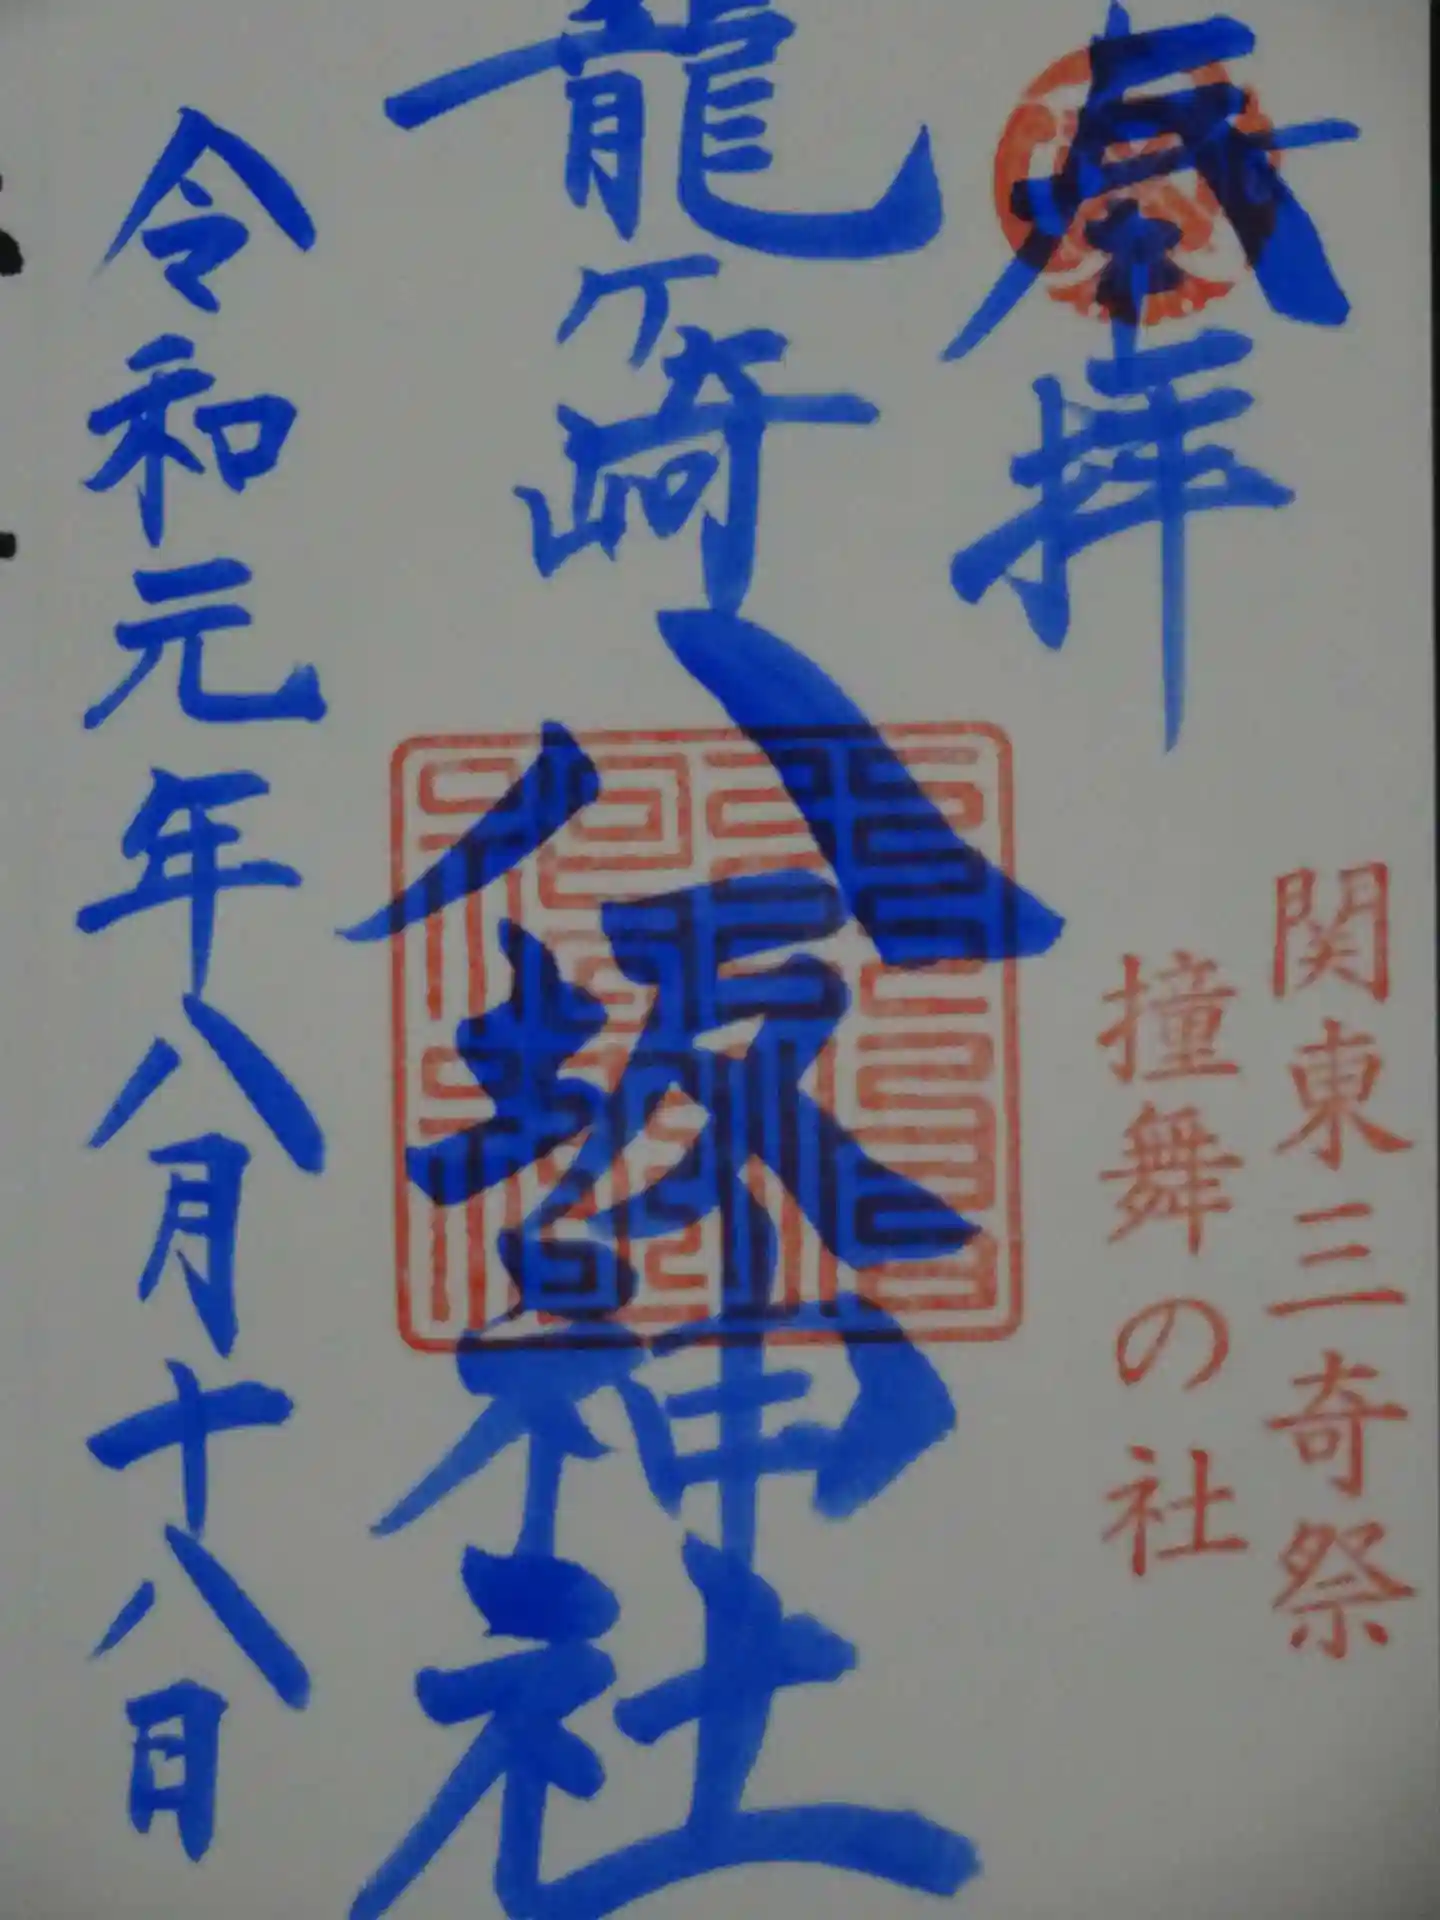 奉拝
関東三奇祭
撞舞の社
龍ヶ崎八坂神社
令和元年八月十八日